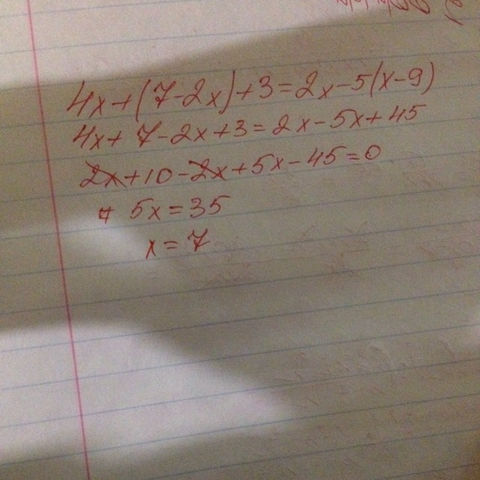 4x+(7-2x)+3=2x-5(x-9)
4x+7-2x+3=2x-5x+45
2x+10-2x+5x-45=0
5x=35
x=7